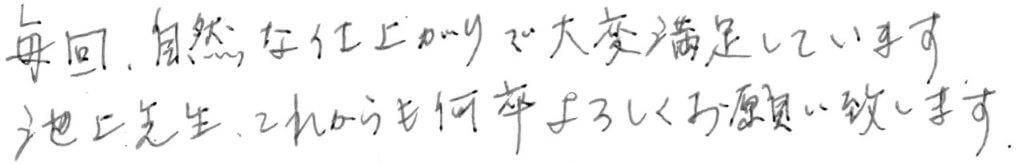 毎回、自然な仕上がりで大変満足しています
池上先生、これからも何卒よろしくお願い致します.